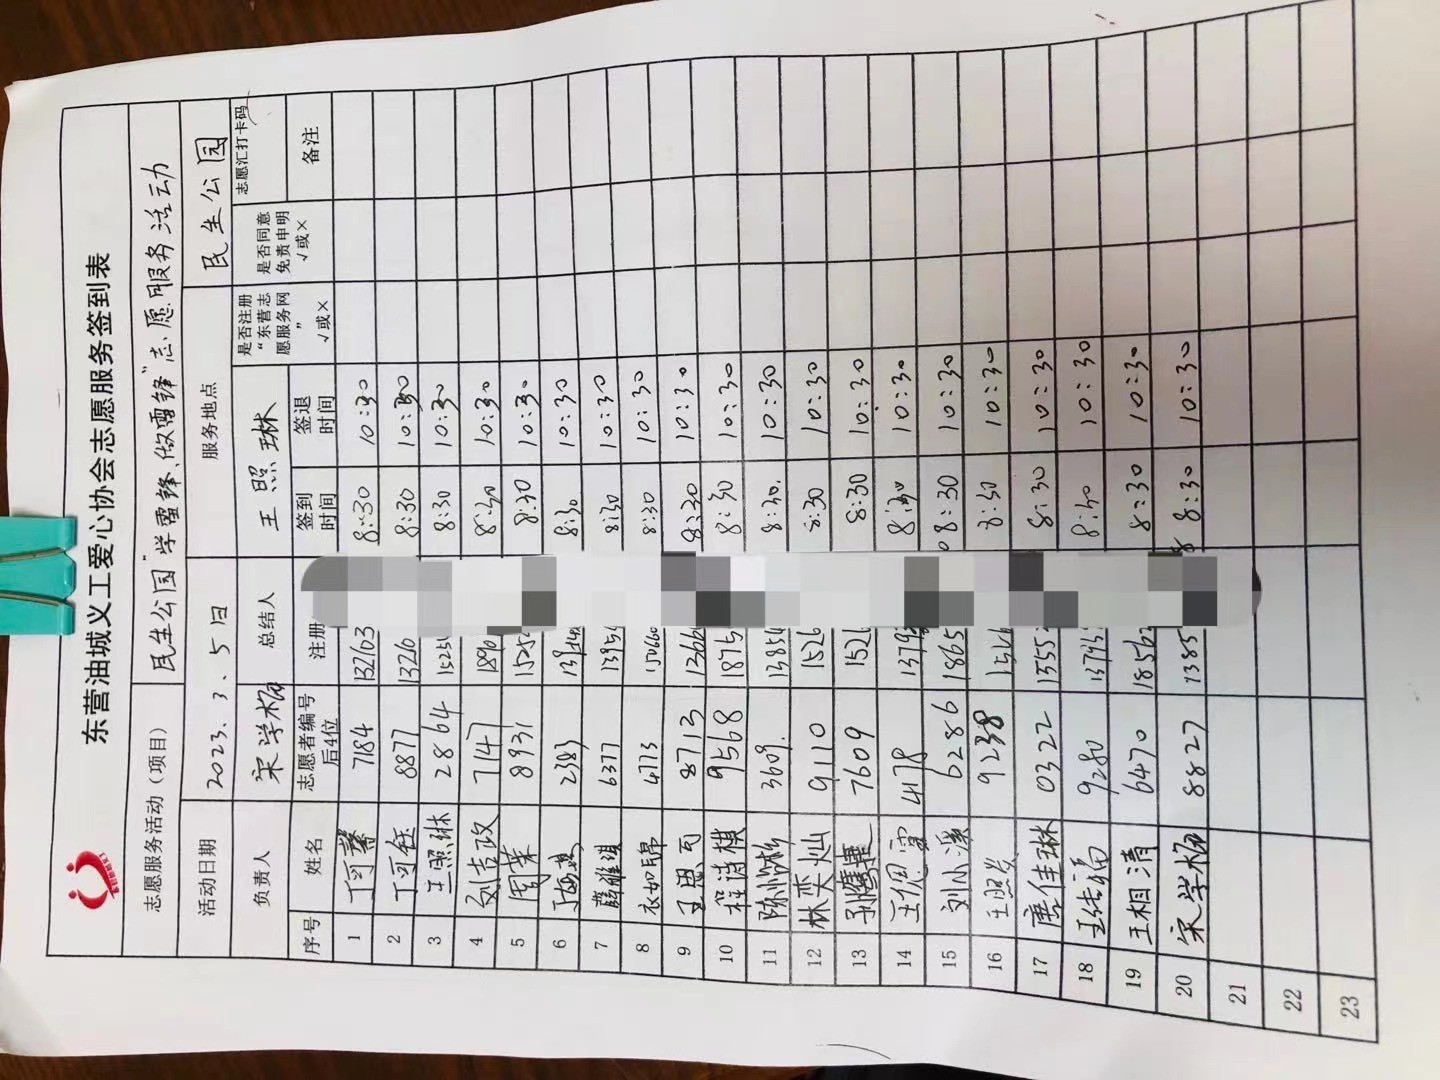 东营油城义工爱心协会志愿服务签到表
志愿服务活动（项目） 民生公园"学雷锋、做雷锋"志愿服务活动
活动日期 2023.3.5日 服务地点 民生公园
负责人 宋学杨 总结人 王照琳 是否注册“东营志愿服务网” √或× 是否同意免责申明 √或× 志愿汇打卡码
序号 姓名 志愿者编号后4位 注册 签到时间 签退时间 备注
1 丁可馨 7184 13703 8:30 10:30
2 丁可钰 8877 1320 8:30 10:30
3 王照琳 2864 1525 8:30 10:30
4 刘吉政 7147 189 8:30 10:30
5 周荣 8931 1525 8:30 10:30
6 2383 139 8:30 10:30
7 薛雅琪 6377 1395 8:30 10:30
8 衣如锦 4773 15066 8:30 10:30
9 王思可 8713 1366 8:30 10:30
10 程诗棋 9568 1875 8:30 10:30
11 3609. 1385 8:30. 10:30
12 林奕灿 9110 1526 8:30 10:30
13 7609 152 8:30 10:30
14 王佩雪 4178 1379 8:30 10:30
15 刘小溪 6286 1865 08:30 10:30
16 9238 8:30 10:30
17 唐佳琳 0322 1555 8:30 10:30
18 9280 1379 8:30 10:30
19 王相清 6470 1856 8:30 10:30
20 宋学杨 8827 1385 8 8:30 10:30
21
22
23